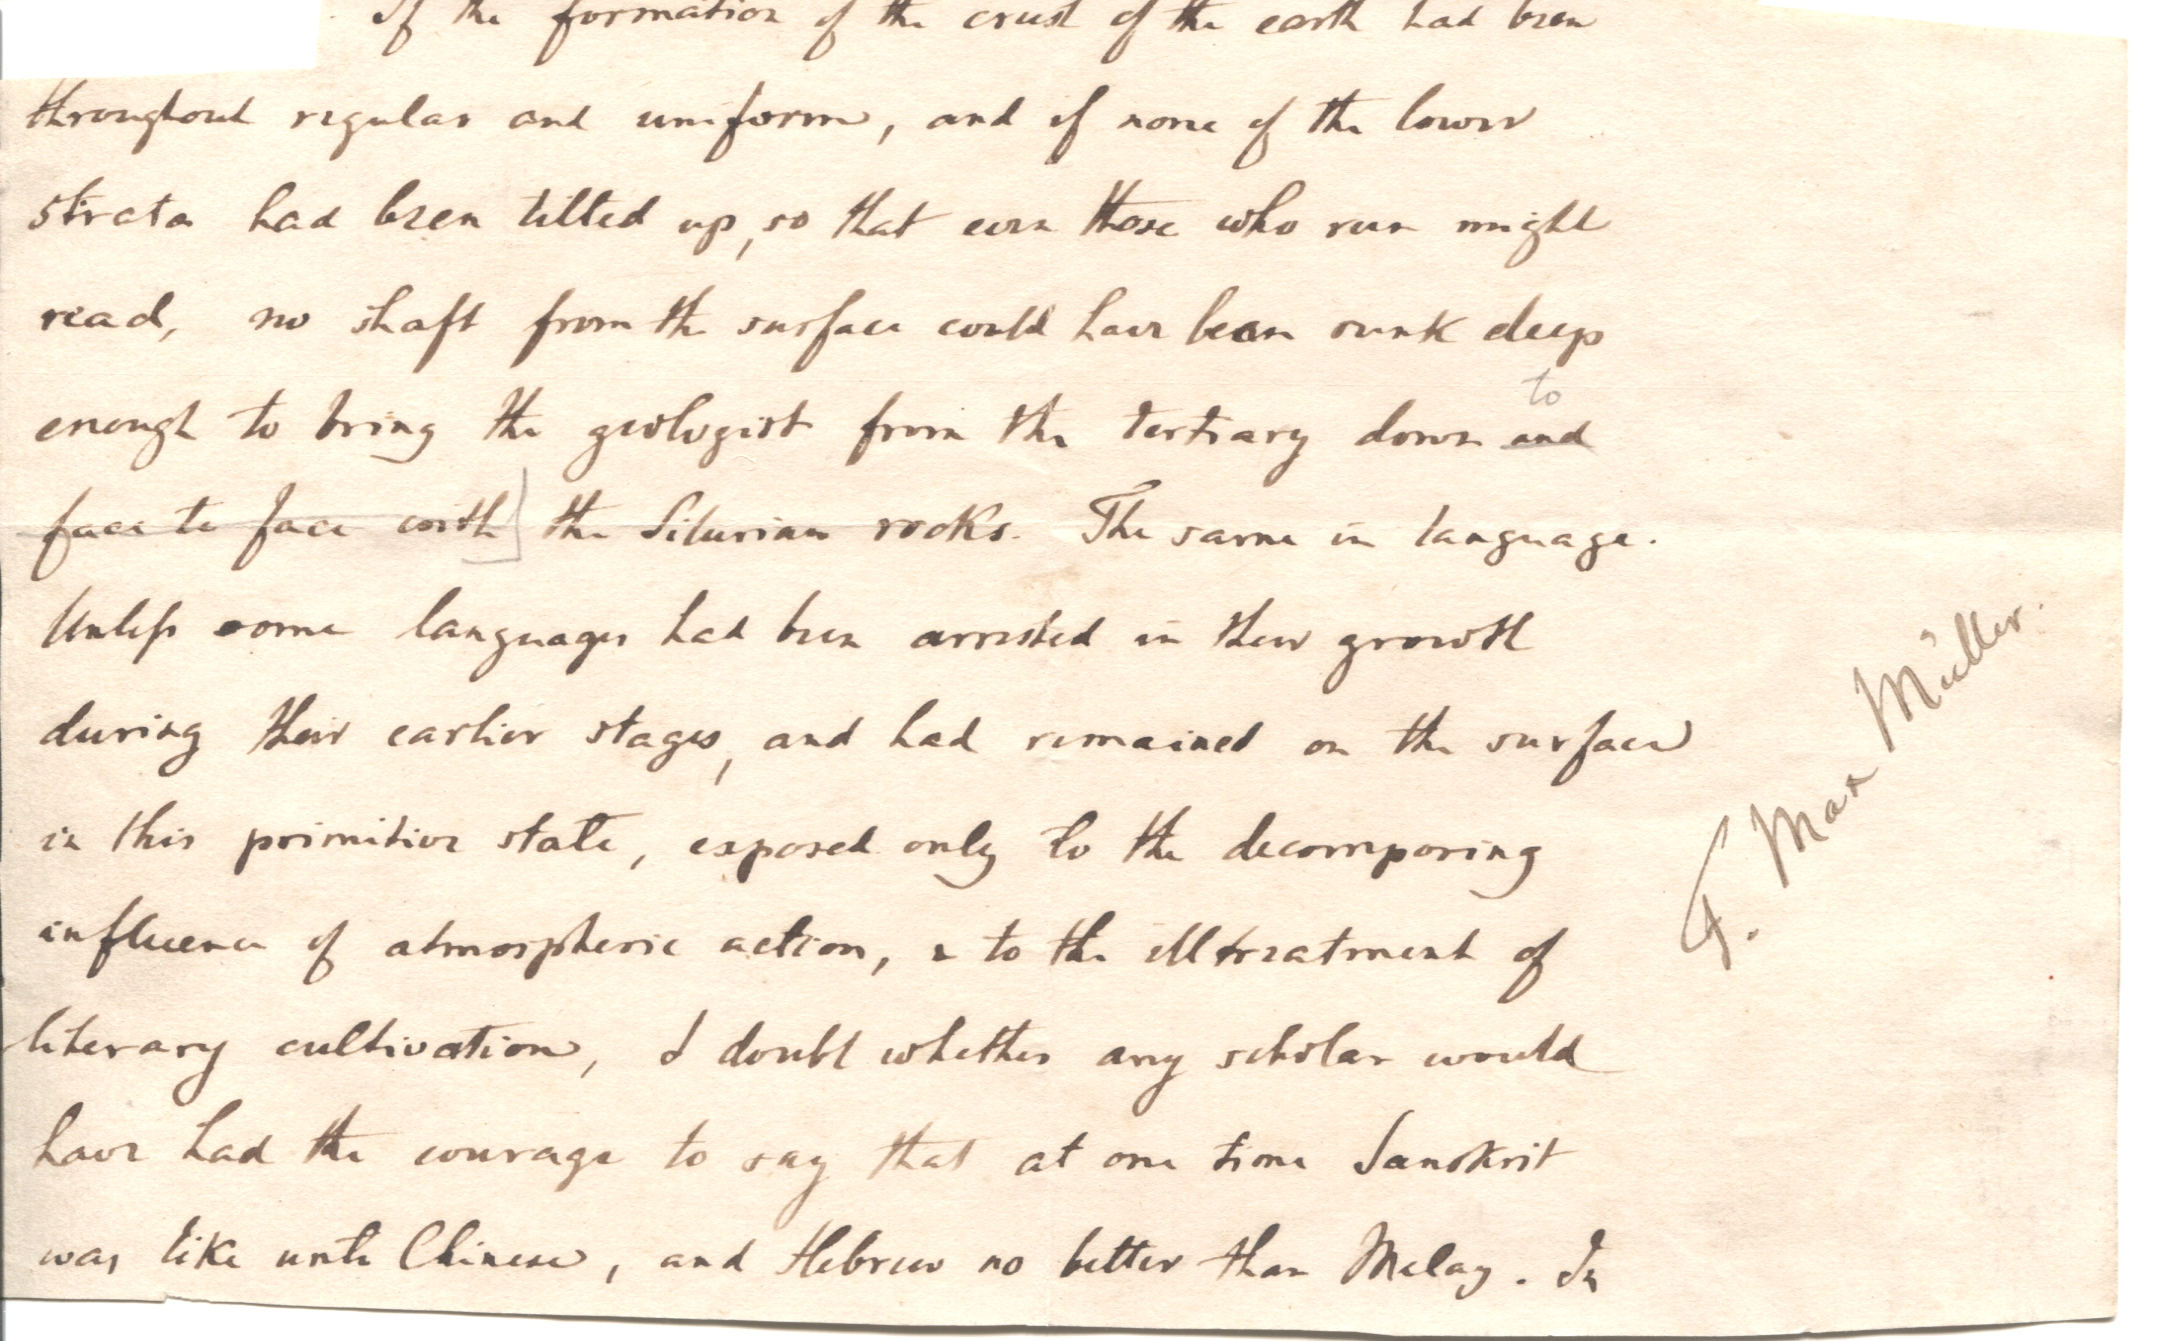 If the formation of the crust of the earth had been
throughout regular and uniform, and if none of the lower
strata had been tilted up, so that even those who run might
read, no shaft from the surface could have been sunk deep
to
enough to bring the geologist from the tertiary down and
face to face with] the Silurian rocks. The same in language.
Unless some languages had been arrested in their growth
during their earlier stages, and had remained on the surface
in this primitive state, exposed only to the decomposing
influence of atmospheric action, & to the illtreatment of
literary cultivation, I doubt whether any scholar would
have had the courage to say that at one time Sanskrit
was like unto Chinese, and Hebrew no better than Malay. In
F. Max Müller.